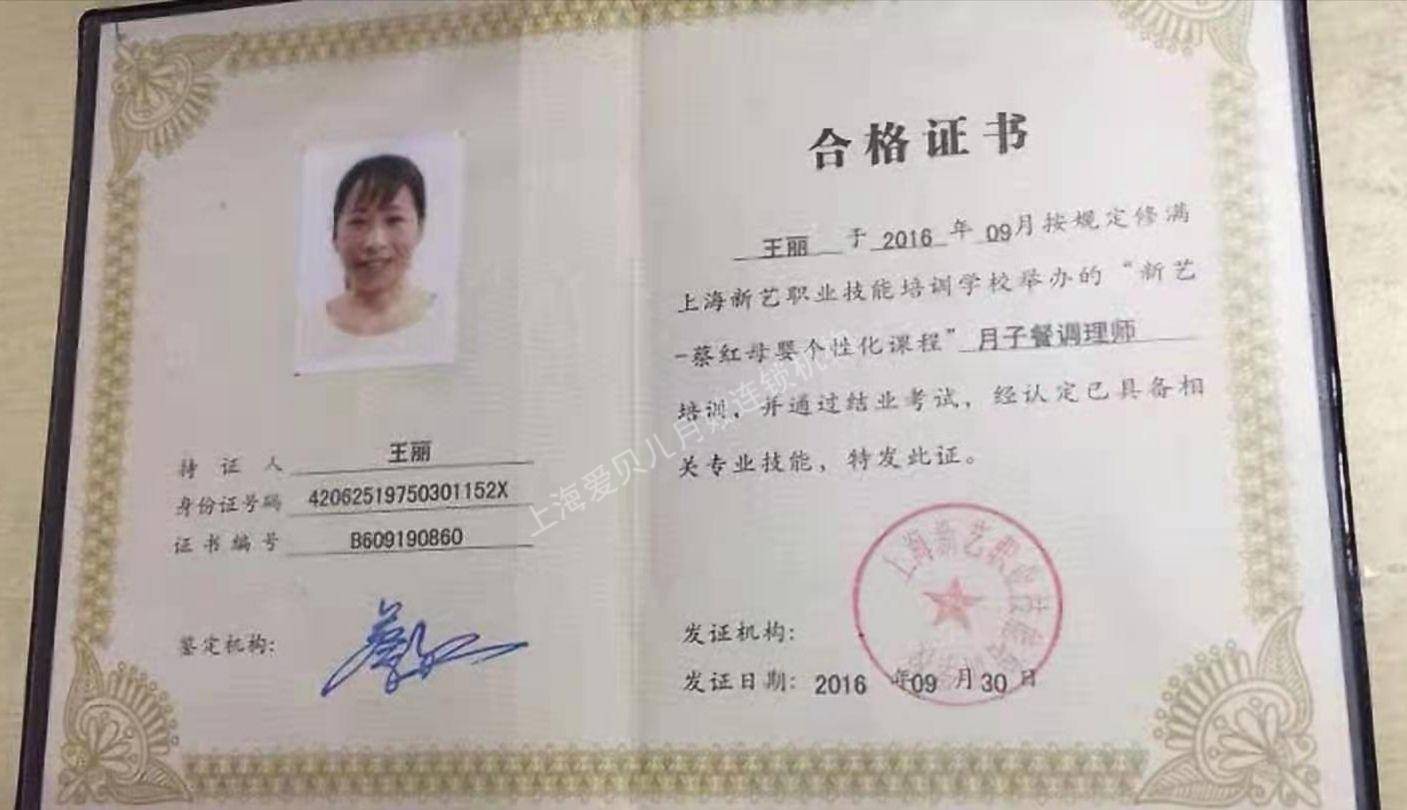 持证人 王丽
身份证号码 42062519750301152X
证书编号 B609190860
鉴定机构:
蔡红
合格证书
王丽 于 2016 年 09月按规定修满
上海新艺职业技能培训学校举办的“新艺
-蔡红母婴个性化课程” 月子餐调理师
培训，并通过结业考试，经认定已具备相
关专业技能，特发此证。
发证机构:
发证日期: 2016 年09 月30日
上海新艺职业技能
上海爱贝儿月嫂连锁机构